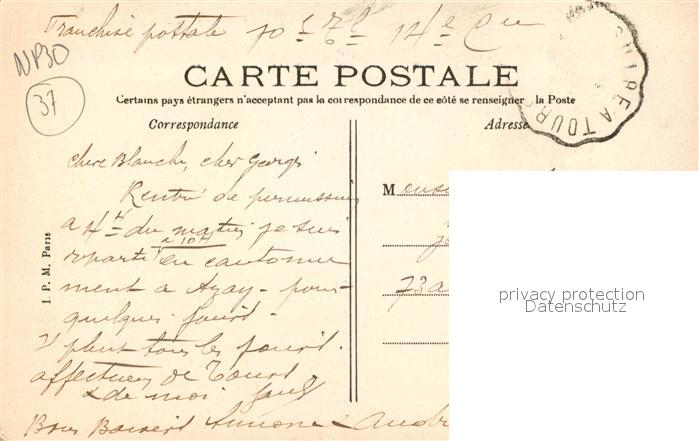 Franchise postale 14e Cie
NP30
37
CHIRE A TOURS
CARTE POSTALE
Certains pays étrangers n'acceptant pas la correspondance de ce côté se renseigner la Poste
Correspondance
Adresse
Chère Blanche, cher Georges
Rentré de permission
a 4H du matin je suis
reparti à 10H en cantonne
ment a Azay - pour
quelques jours -
Il plent tous les jours.
affectueux de Tours
& de moi
Bons Baisers Simone & André
M
73
I. P. M. Paris
privacy protection
Datenschutz